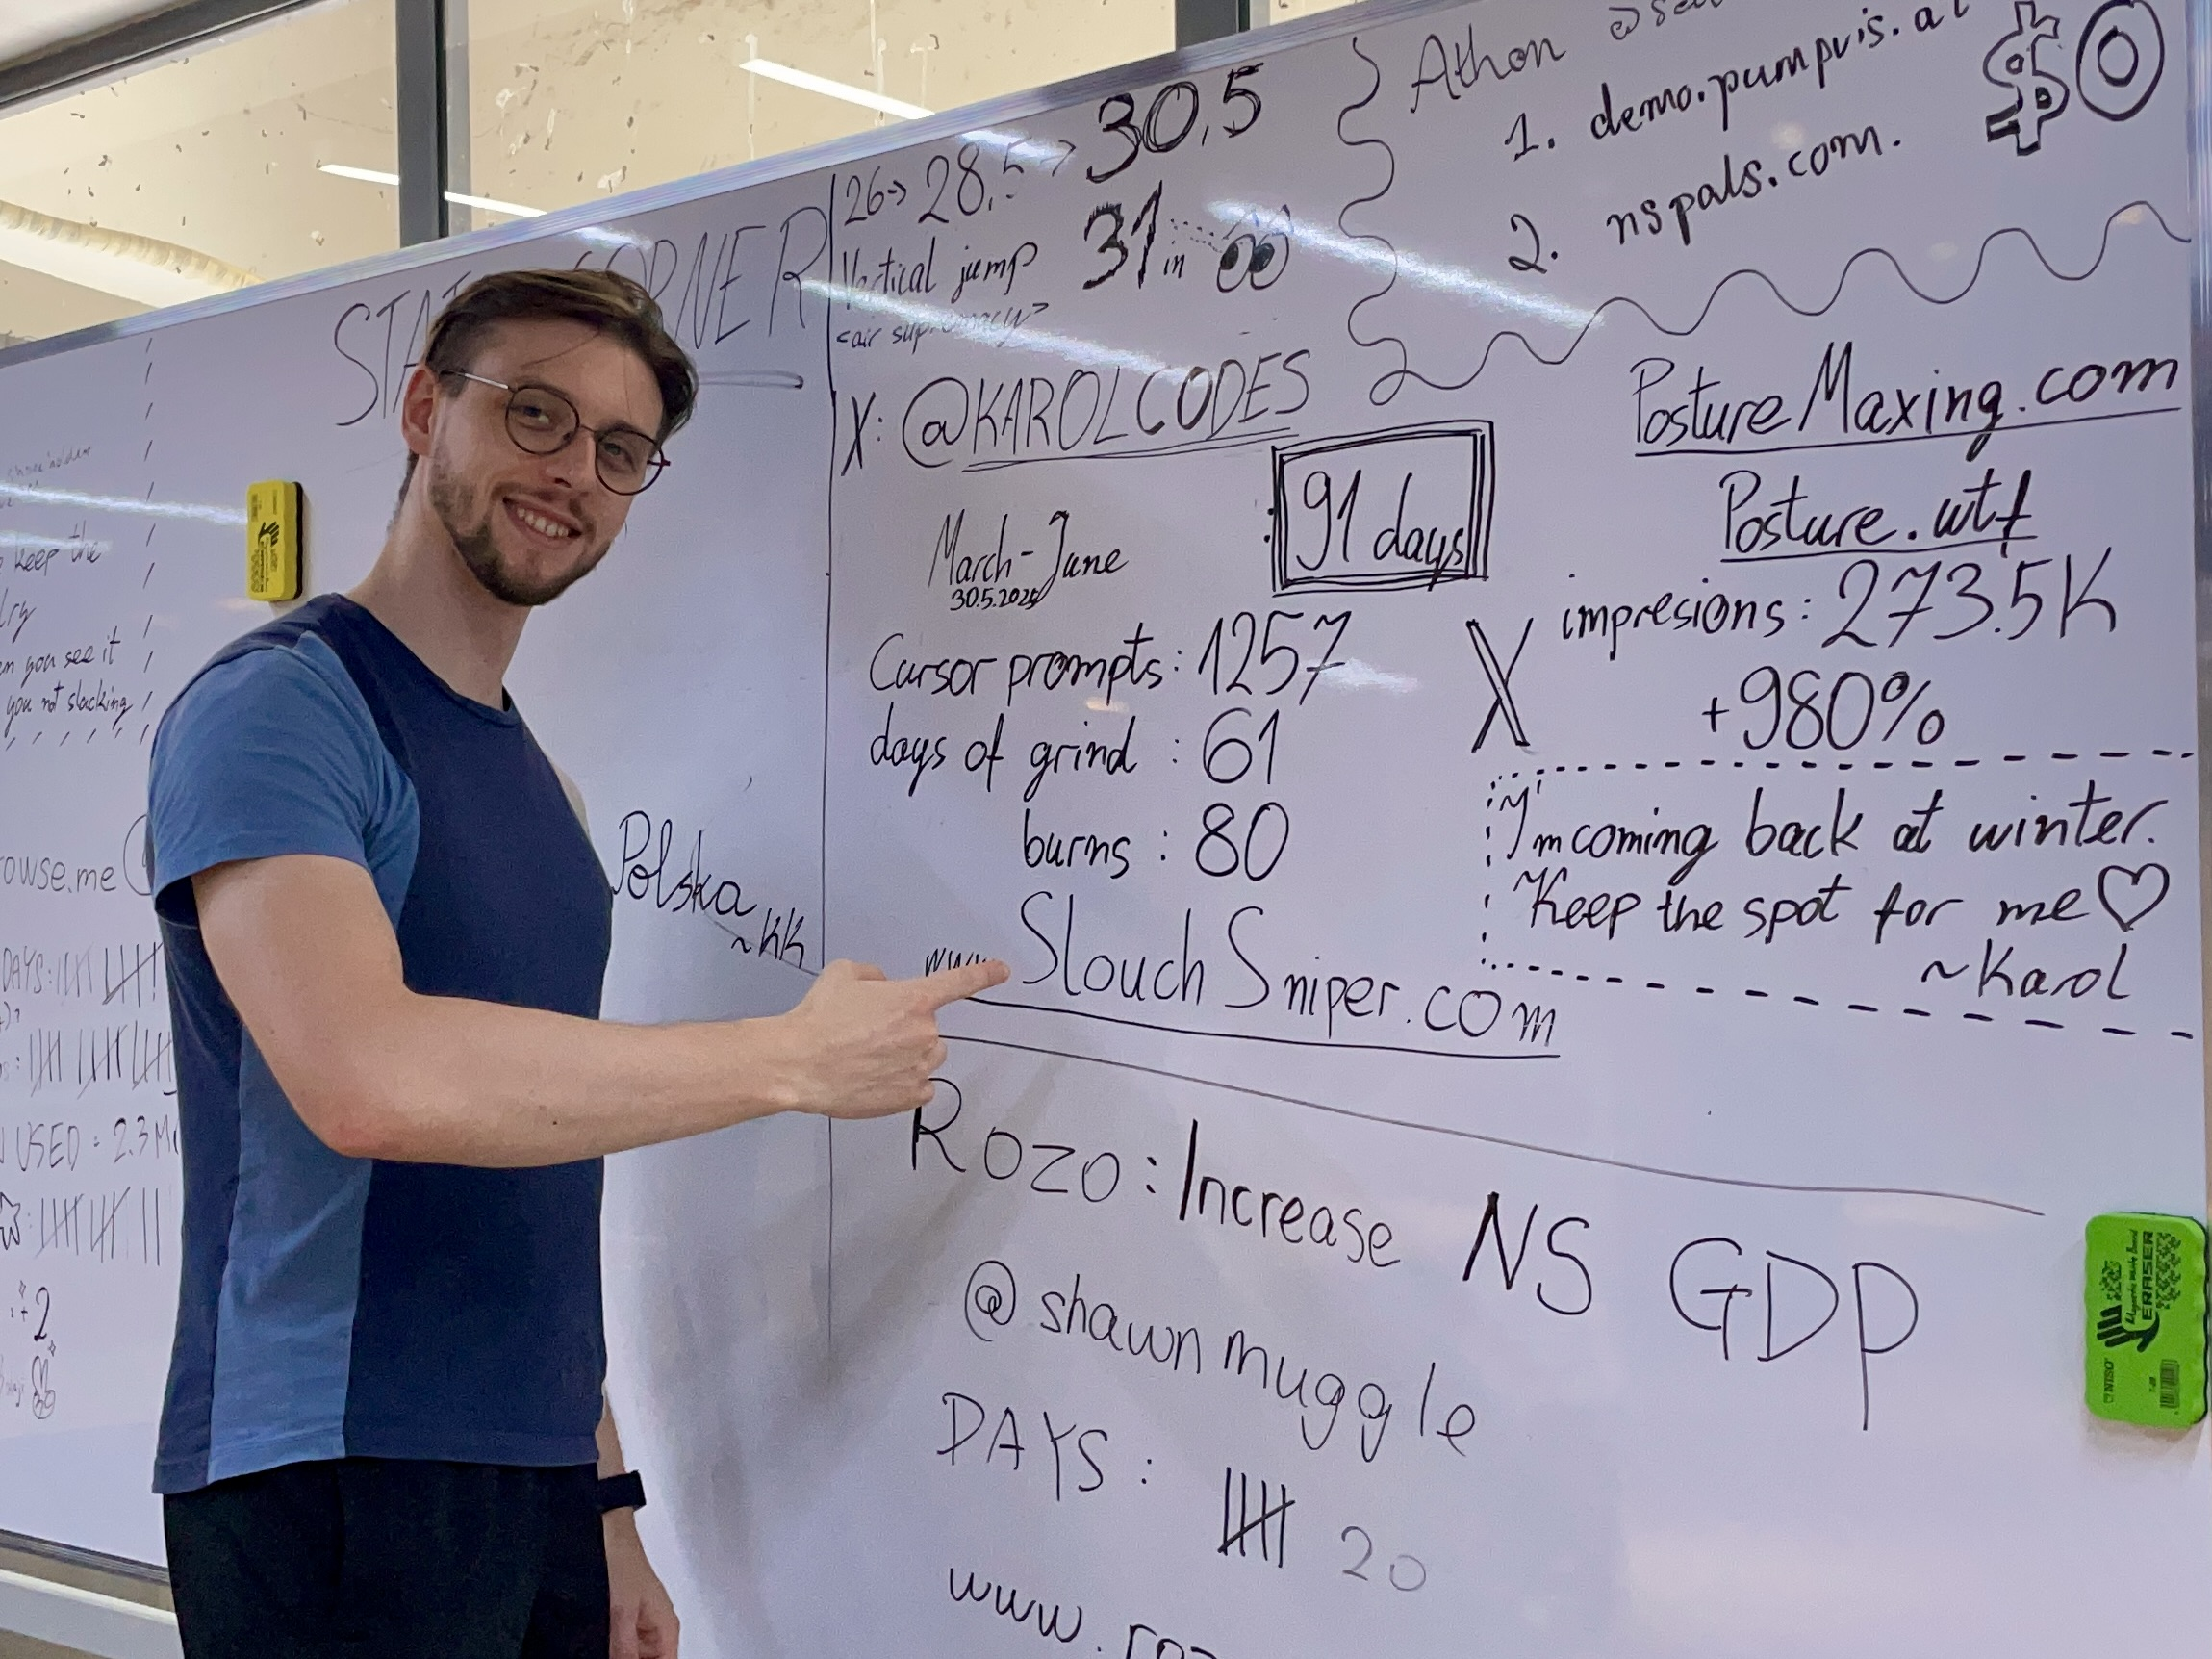 keep the
you see it
you not slacking
owse.me
DAYS:
USED = 2.3M
+2
CORNER
Polska
~KK
26→ 28,5 → 30,5
Vertical jump 31 in
<air supremacy>
X: @KAROLCODES
91 days
March-June
30.5.2025
Cursor prompts: 1257
days of grind : 61
burns : 80
www.SlouchSniper.com
Athon
1. demo.pumpvis.a
2. nspals.com.
$0
PostureMaxing.com
Posture.wtf
X impresions: 273.5K
+980%
I'm coming back at winter.
Keep the spot for me ♡
~Karol
Rozo: Increase NS GDP
@shawnmuggle
DAYS: 20
www.roz
ERASER